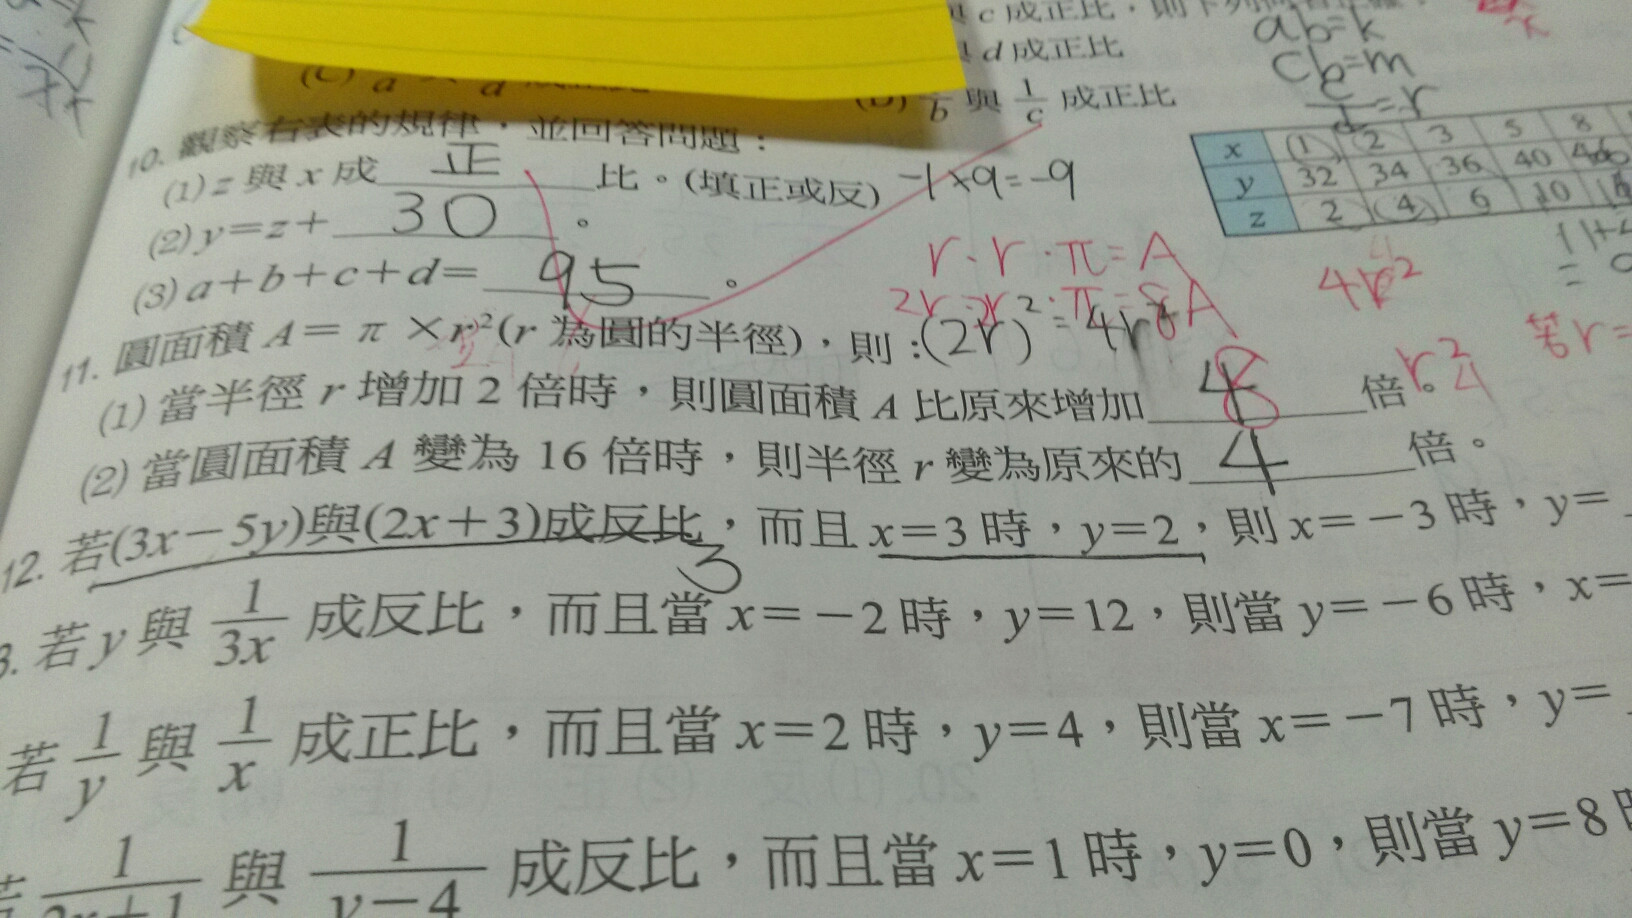 c 成正比，則下列
ab=k
d 成正比
cb=m
(C) a d
(D) b 與 1/c 成正比
=r
10. 觀察右表的規律，並回答問題：
x (1) (2) 3 5 8
y 32 34 36 40
z 2 (4) 6 10
(1) z 與 x 成 正 比。(填正或反) -1×9=-9
(2) y=z+ 30 。
(3) a+b+c+d= 95 。
r·r·π=A
4r²
11. 圓面積 A=π×r²(r 為圓的半徑)，則：(2r)²=4r²
若r=
(1) 當半徑 r 增加 2 倍時，則圓面積 A 比原來增加 4 8 倍。
r²
4
(2) 當圓面積 A 變為 16 倍時，則半徑 r 變為原來的 4 倍。
12. 若(3x-5y)與(2x+3)成反比，而且 x=3 時，y=2，則 x=-3 時，y=
3
3. 若 y 與 1/3x 成反比，而且當 x=-2 時，y=12，則當 y=-6 時，x=
若 1/y 與 1/x 成正比，而且當 x=2 時，y=4，則當 x=-7 時，y=
1 與 1/y-4 成反比，而且當 x=1 時，y=0，則當 y=8